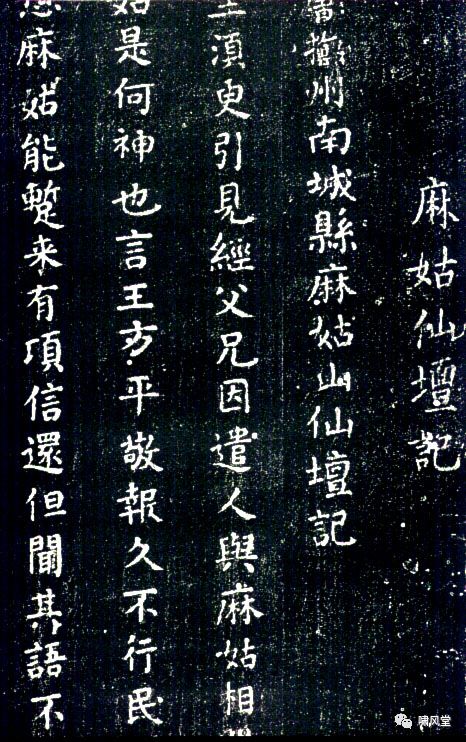 麻姑仙壇記
撫州南城縣麻姑山仙壇記
湏更引見經父兄因遣人與麻姑相
姑是何神也言王方平敬報久不行民
麻姑能蹔来有項信還但聞其語不
啸风堂